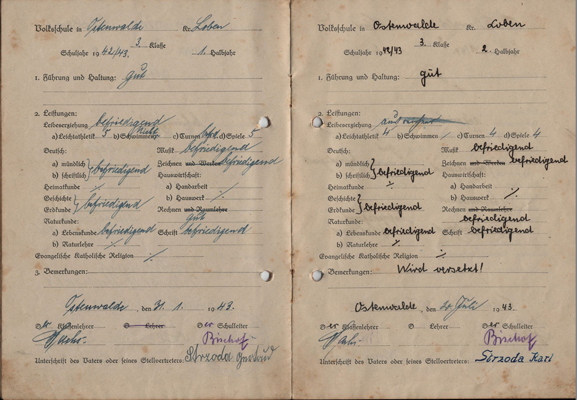 Volksschule in Ostenwalde Kr. Loben
Schuljahr 1942/43 3. Klasse 1. Halbjahr
1. Führung und Haltung: gut
2. Leistungen:
Leibeserziehung befriedigend
a) Leichtathletik 5 b) Schwimmen c) Turnen d) Spiele 5
Deutsch: Musik befriedigend
a) mündlich Zeichnen und Werken befriedigend
b) schriftlich befriedigend Hauswirtschaft:
Heimatkunde a) Handarbeit
Geschichte b) Hauswerk
Erdkunde befriedigend Rechnen und Raumlehre
Naturkunde: gut
a) Lebenskunde befriedigend Schrift befriedigend
b) Naturlehre
Evangelische Katholische Religion
3. Bemerkungen:
Ostenwalde, den 31. 1. 1943.
Der Klassenlehrer D Lehrer Der Schulleiter
Bischof
Unterschrift des Vaters oder seines Stellvertreters: Strzoda
Volksschule in Ostenwalde Kr. Loben
Schuljahr 1942/43 3. Klasse 2. Halbjahr
1. Führung und Haltung: gut
2. Leistungen:
Leibeserziehung
a) Leichtathletik 4 b) Schwimmen c) Turnen 4 d) Spiele 4
Deutsch: Musik befriedigend
a) mündlich Zeichnen und Werken befriedigend
b) schriftlich befriedigend Hauswirtschaft:
Heimatkunde a) Handarbeit
Geschichte b) Hauswerk
Erdkunde befriedigend Rechnen und Raumlehre
Naturkunde: befriedigend
a) Lebenskunde befriedigend Schrift befriedigend
b) Naturlehre
Evangelische Katholische Religion
3. Bemerkungen: Wird versetzt!
Ostenwalde, den Juli 1943
Der Klassenlehrer D Lehrer Der Schulleiter
Bischof
Unterschrift des Vaters oder seines Stellvertreters: Strzoda Karl